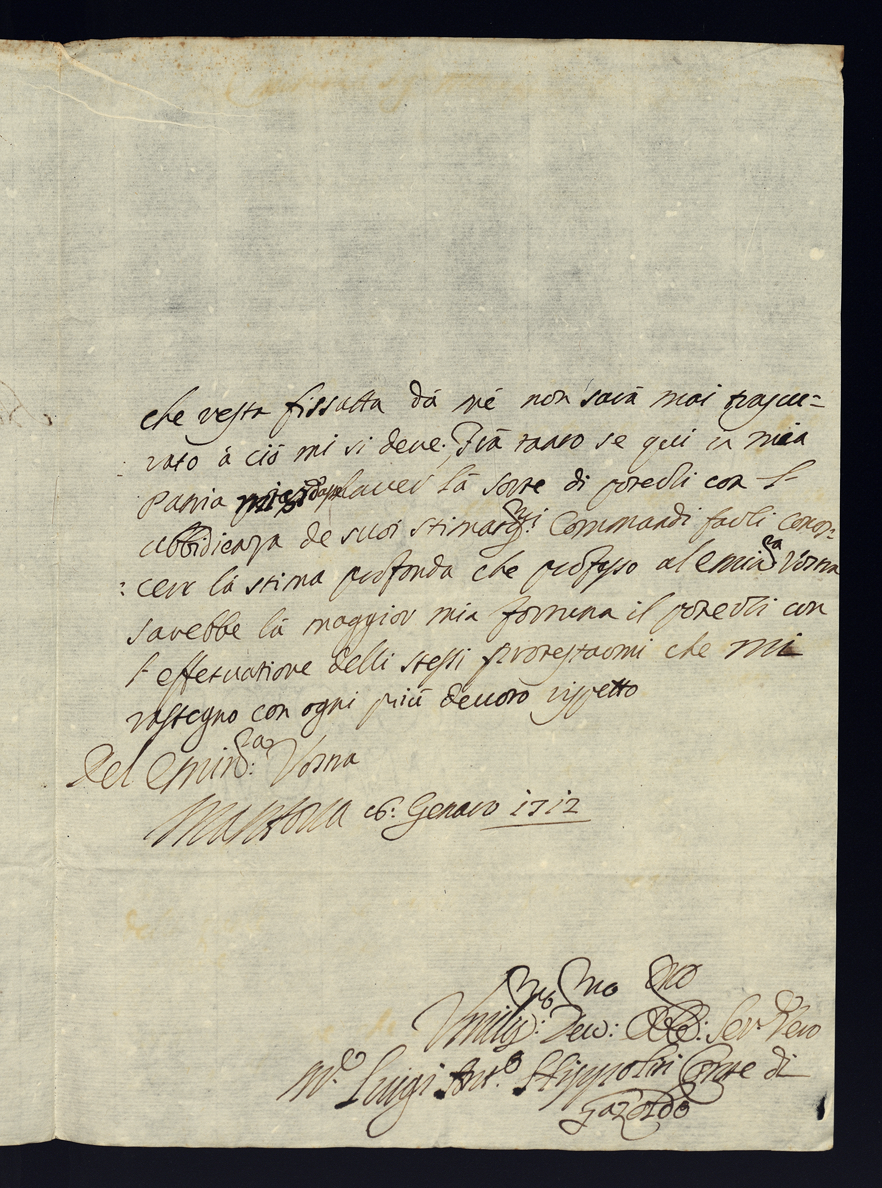 che resta fissatta dà mè non sarà mai trascu=
rato à ciò mi si deve. Frà tanto se qui in mia
Patria l'aver là sorte di poterli con l'
ubbidienza de suoi stimat.mi Commandi farli conos=
:cere là stima profonda che professo al Emin.za Vostra
sarebbe là maggior mia fortuna il poterli con
l'effetuatione delli stessi protestarmi che mi
rassegno con ogni più devoto rispetto
Del Emin.za: Vostra
Mantova 26: Genaro 1712
Umilis.mo: Dev.mo: Obb.mo: Ser.re Vero
M.e Luigi Ant.o Hippoliti Conte di
Gazoldo